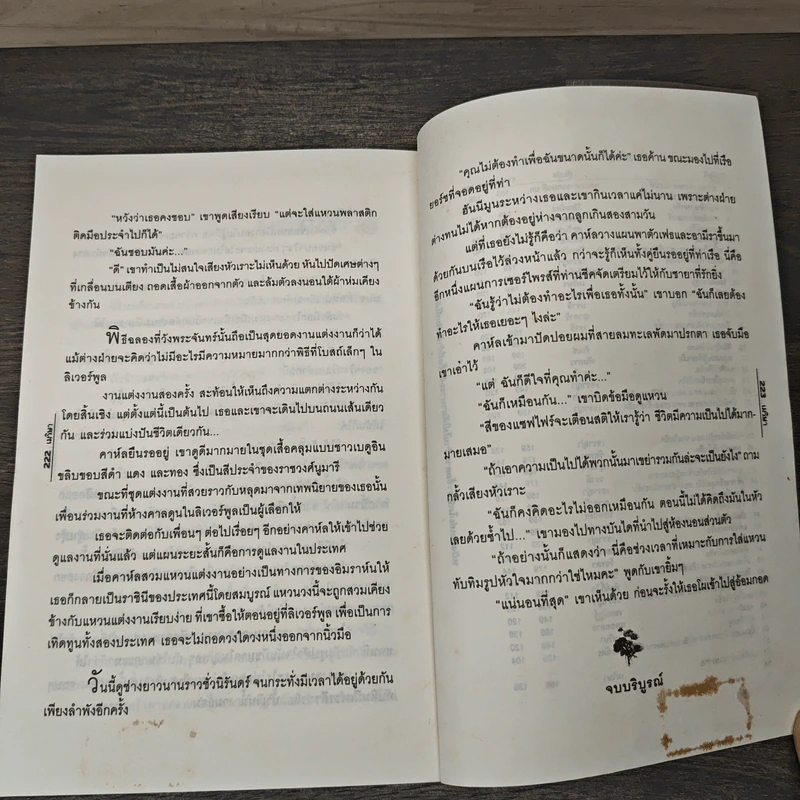 "หวังว่าเธอคงชอบ" เขาพูดเสียงเรียบ "แต่จะใส่แหวนพลาสติก
ติดมือประจำไปก็ได้"
"ฉันชอบมันค่ะ..."
"ดี" เขาทำเป็นไม่สนใจเสียงหัวเราะไม่เห็นด้วย หันไปปัดเศษต่างๆ
ที่เกลื่อนบนเตียง ถอดเสื้อผ้าออกจากตัว และล้มตัวลงนอนใต้ผ้าห่มเคียง
ข้างกัน
พิธีฉลองที่วังพระจันทร์นั้นถือเป็นสุดยอดงานแต่งงานก็ว่าได้
แม้ต่างฝ่ายจะคิดว่าไม่มีอะไรมีความหมายมากกว่าพิธีที่โบสถ์เล็กๆ ใน
ลิเวอร์พูล
งานแต่งงานสองครั้ง สะท้อนให้เห็นถึงความแตกต่างระหว่างกัน
โดยสิ้นเชิง แต่ตั้งแต่นี้เป็นต้นไป เธอและเขาจะเดินไปบนถนนเส้นเดียว
กัน และร่วมแบ่งปันชีวิตเดียวกัน...
คาห์ลยืนรออยู่ เขาดูดีมากมายในชุดเสื้อคลุมแบบชาวเบดูอิน
ขลิบขอบสีดำ แดง และทอง ซึ่งเป็นสีประจำของราชวงศ์นูมารี
ขณะที่ชุดแต่งงานที่สวยราวกับหลุดมาจากเทพนิยายของเธอนั้น
เพื่อนร่วมงานที่ห้างคาลดูนในลิเวอร์พูลเป็นผู้เลือกให้
เธอจะติดต่อกับเพื่อนๆ ต่อไปเรื่อยๆ อีกอย่างคาห์ลให้เข้าไปช่วย
ดูแลงานที่นั่นแล้ว แต่แผนระยะสั้นก็คือการดูแลงานในประเทศ
เมื่อคาห์ลสวมแหวนแต่งงานอย่างเป็นทางการของอิมราห์นให้
เธอก็กลายเป็นราชินีของประเทศนี้โดยสมบูรณ์ แหวนวงนี้จะถูกสวมเคียง
ข้างกับแหวนแต่งงานเรียบง่าย ที่เขาซื้อให้ตอนอยู่ที่ลิเวอร์พูล เพื่อเป็นการ
เทิดทูนทั้งสองประเทศ เธอจะไม่ถอดวงใดวงหนึ่งออกจากนิ้วมือ
วันนี้ดูช่างยาวนานราวชั่วนิรันดร์ จนกระทั่งมีเวลาได้อยู่ด้วยกัน
เพียงลำพังอีกครั้ง
222
"คุณไม่ต้องทำเพื่อฉันขนาดนั้นก็ได้ค่ะ" เธอค้าน ขณะมองไปที่เรือ
ยอร์ชที่จอดอยู่ที่ท่า
ฮันนีมูนระหว่างเธอและเขากินเวลาแค่ไม่นาน เพราะต่างฝ่าย
ต่างทนไม่ได้หากต้องอยู่ห่างจากลูกเกินสองสามวัน
แต่ที่เธอยังไม่รู้ก็คือว่า คาห์ลวางแผนพาตัวเฟธและอามีราขึ้นมา
ด้วยกันบนเรือไว้ล่วงหน้าแล้ว กว่าจะรู้ก็เห็นทั้งคู่ยืนรออยู่ที่ท่าเรือ นี่คือ
อีกหนึ่งแผนการเซอร์ไพรส์ที่ท่านชีคจัดเตรียมไว้ให้กับชายาที่รักยิ่ง
"ฉันรู้ว่าไม่ต้องทำอะไรเพื่อเธอทั้งนั้น" เขาบอก "ฉันก็เลยต้อง
ทำอะไรให้เธอเยอะๆ ไงล่ะ"
คาห์ลเข้ามาปัดปอยผมที่สายลมทะเลพัดมาปรกตา เธอจับมือ
เขาเอาไว้
"แต่ ฉันก็ดีใจที่คุณทำค่ะ..."
"ฉันก็เหมือนกัน..." เขาบิดข้อมือดูแหวน
"สีของแซฟไฟร์จะเตือนสติให้เรารู้ว่า ชีวิตมีความเป็นไปได้มาก-
มายเสมอ"
"ถ้าเอาความเป็นไปได้พวกนั้นมาเขย่ารวมกันล่ะจะเป็นยังไง" ถาม
กลั้วเสียงหัวเราะ
"ฉันก็คงคิดอะไรไม่ออกเหมือนกัน ตอนนี้ไม่ได้คิดถึงมันในหัว
เลยด้วยซ้ำไป..." เขามองไปทางบันไดที่นำไปสู่ห้องนอนส่วนตัว
"ถ้าอย่างนั้นก็แสดงว่า นี่คือช่วงเวลาที่เหมาะกับการใส่แหวน
ทับทิมรูปหัวใจมากกว่าใช่ไหมคะ" พูดกับเขายิ้มๆ
"แน่นอนที่สุด" เขาเห็นด้วย ก่อนจะรั้งให้เธอโผเข้าไปสู่อ้อมกอด
จบบริบูรณ์
223